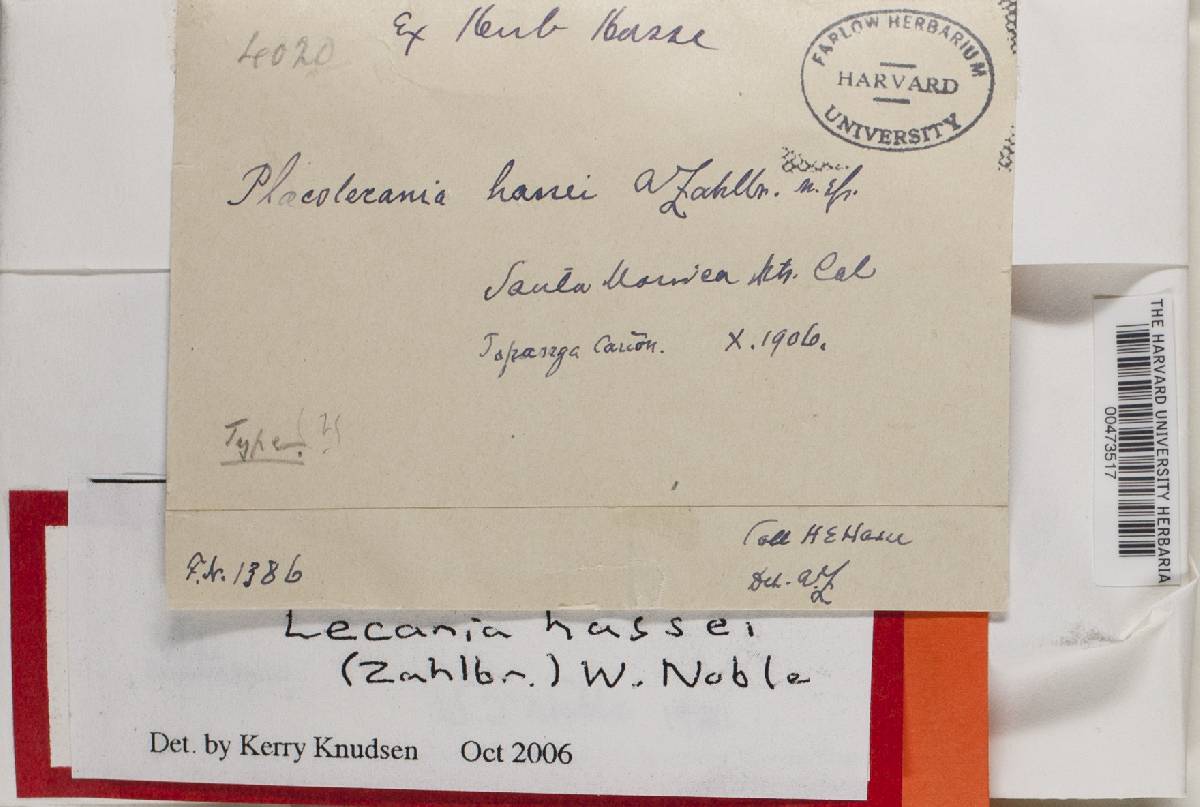 4020
Ex Herb Hasse
FARLOW HERBARIUM
HARVARD
UNIVERSITY
Placolecania hassei AZahlbr. n.
Santa Monica Mts. Cal
Topanga Cañon. X. 1906.
Type. (?)
F.N. 1386
Coll H E Hasse
Det. A.Z
Lecania hassei
(Zahlbr.) W. Noble
Det. by Kerry Knudsen Oct 2006
THE HARVARD UNIVERSITY HERBARIA
00473517